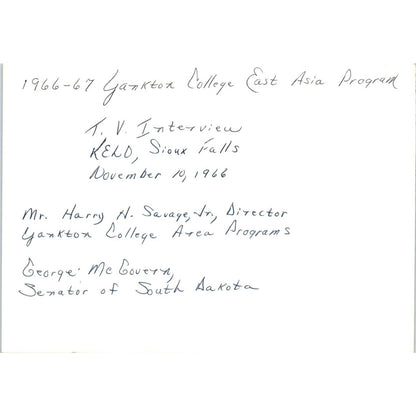 1966-67 Yankton College East Asia Program
T. V. Interview
KELO, Sioux Falls
November 10, 1966
Mr. Harry H. Savage, Jr., Director
Yankton College Area Programs
George McGovern,
Senator of South Dakota